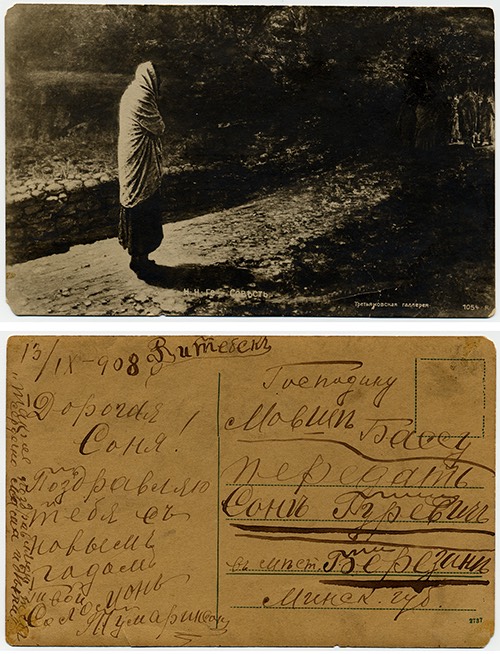 Н. Н. Ге. Совѣсть
Третьяковская галлерея
1054 К
13/IX-908 Витебскъ
Дорогая
Соня!
Поздравляю
тебя съ
новымъ
годомъ
Твой
Соломонъ
Тумаринсонъ
Господину
Мовшѣ Бассу
передать
Сонѣ Гуревичъ
въ мѣст. Березинѣ
Минск. губ.
2737